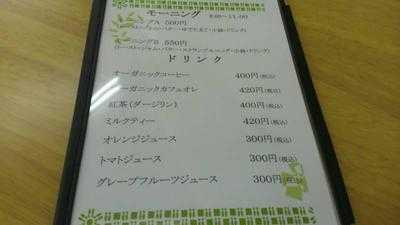 モーニング 8:00~11:00
グA 500円
ーニングB 550円
ドリンク
オーガニックコーヒー 400円(税込)
ーガニックカフェオレ 420円(税込)
紅茶(ダージリン) 400円(税込)
ミルクティー 420円(税込)
オレンジジュース 300円(税込)
トマトジュース 300円(税込)
グレープフルーツジュース 300円(税込)